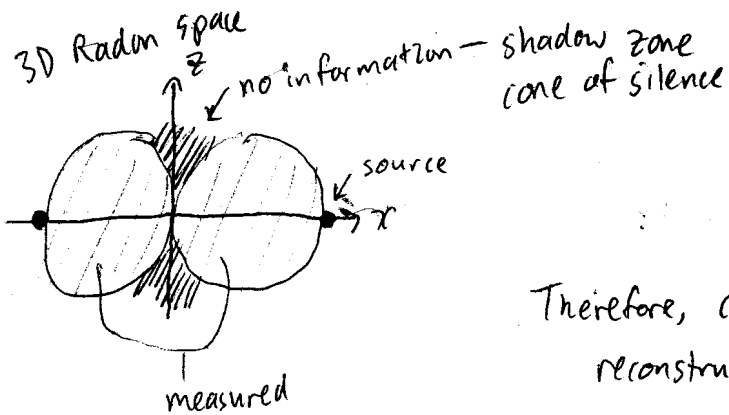 3D Radon space
z
no information - shadow zone
cone of silence
source
x
Therefore, c
reconstru
measured